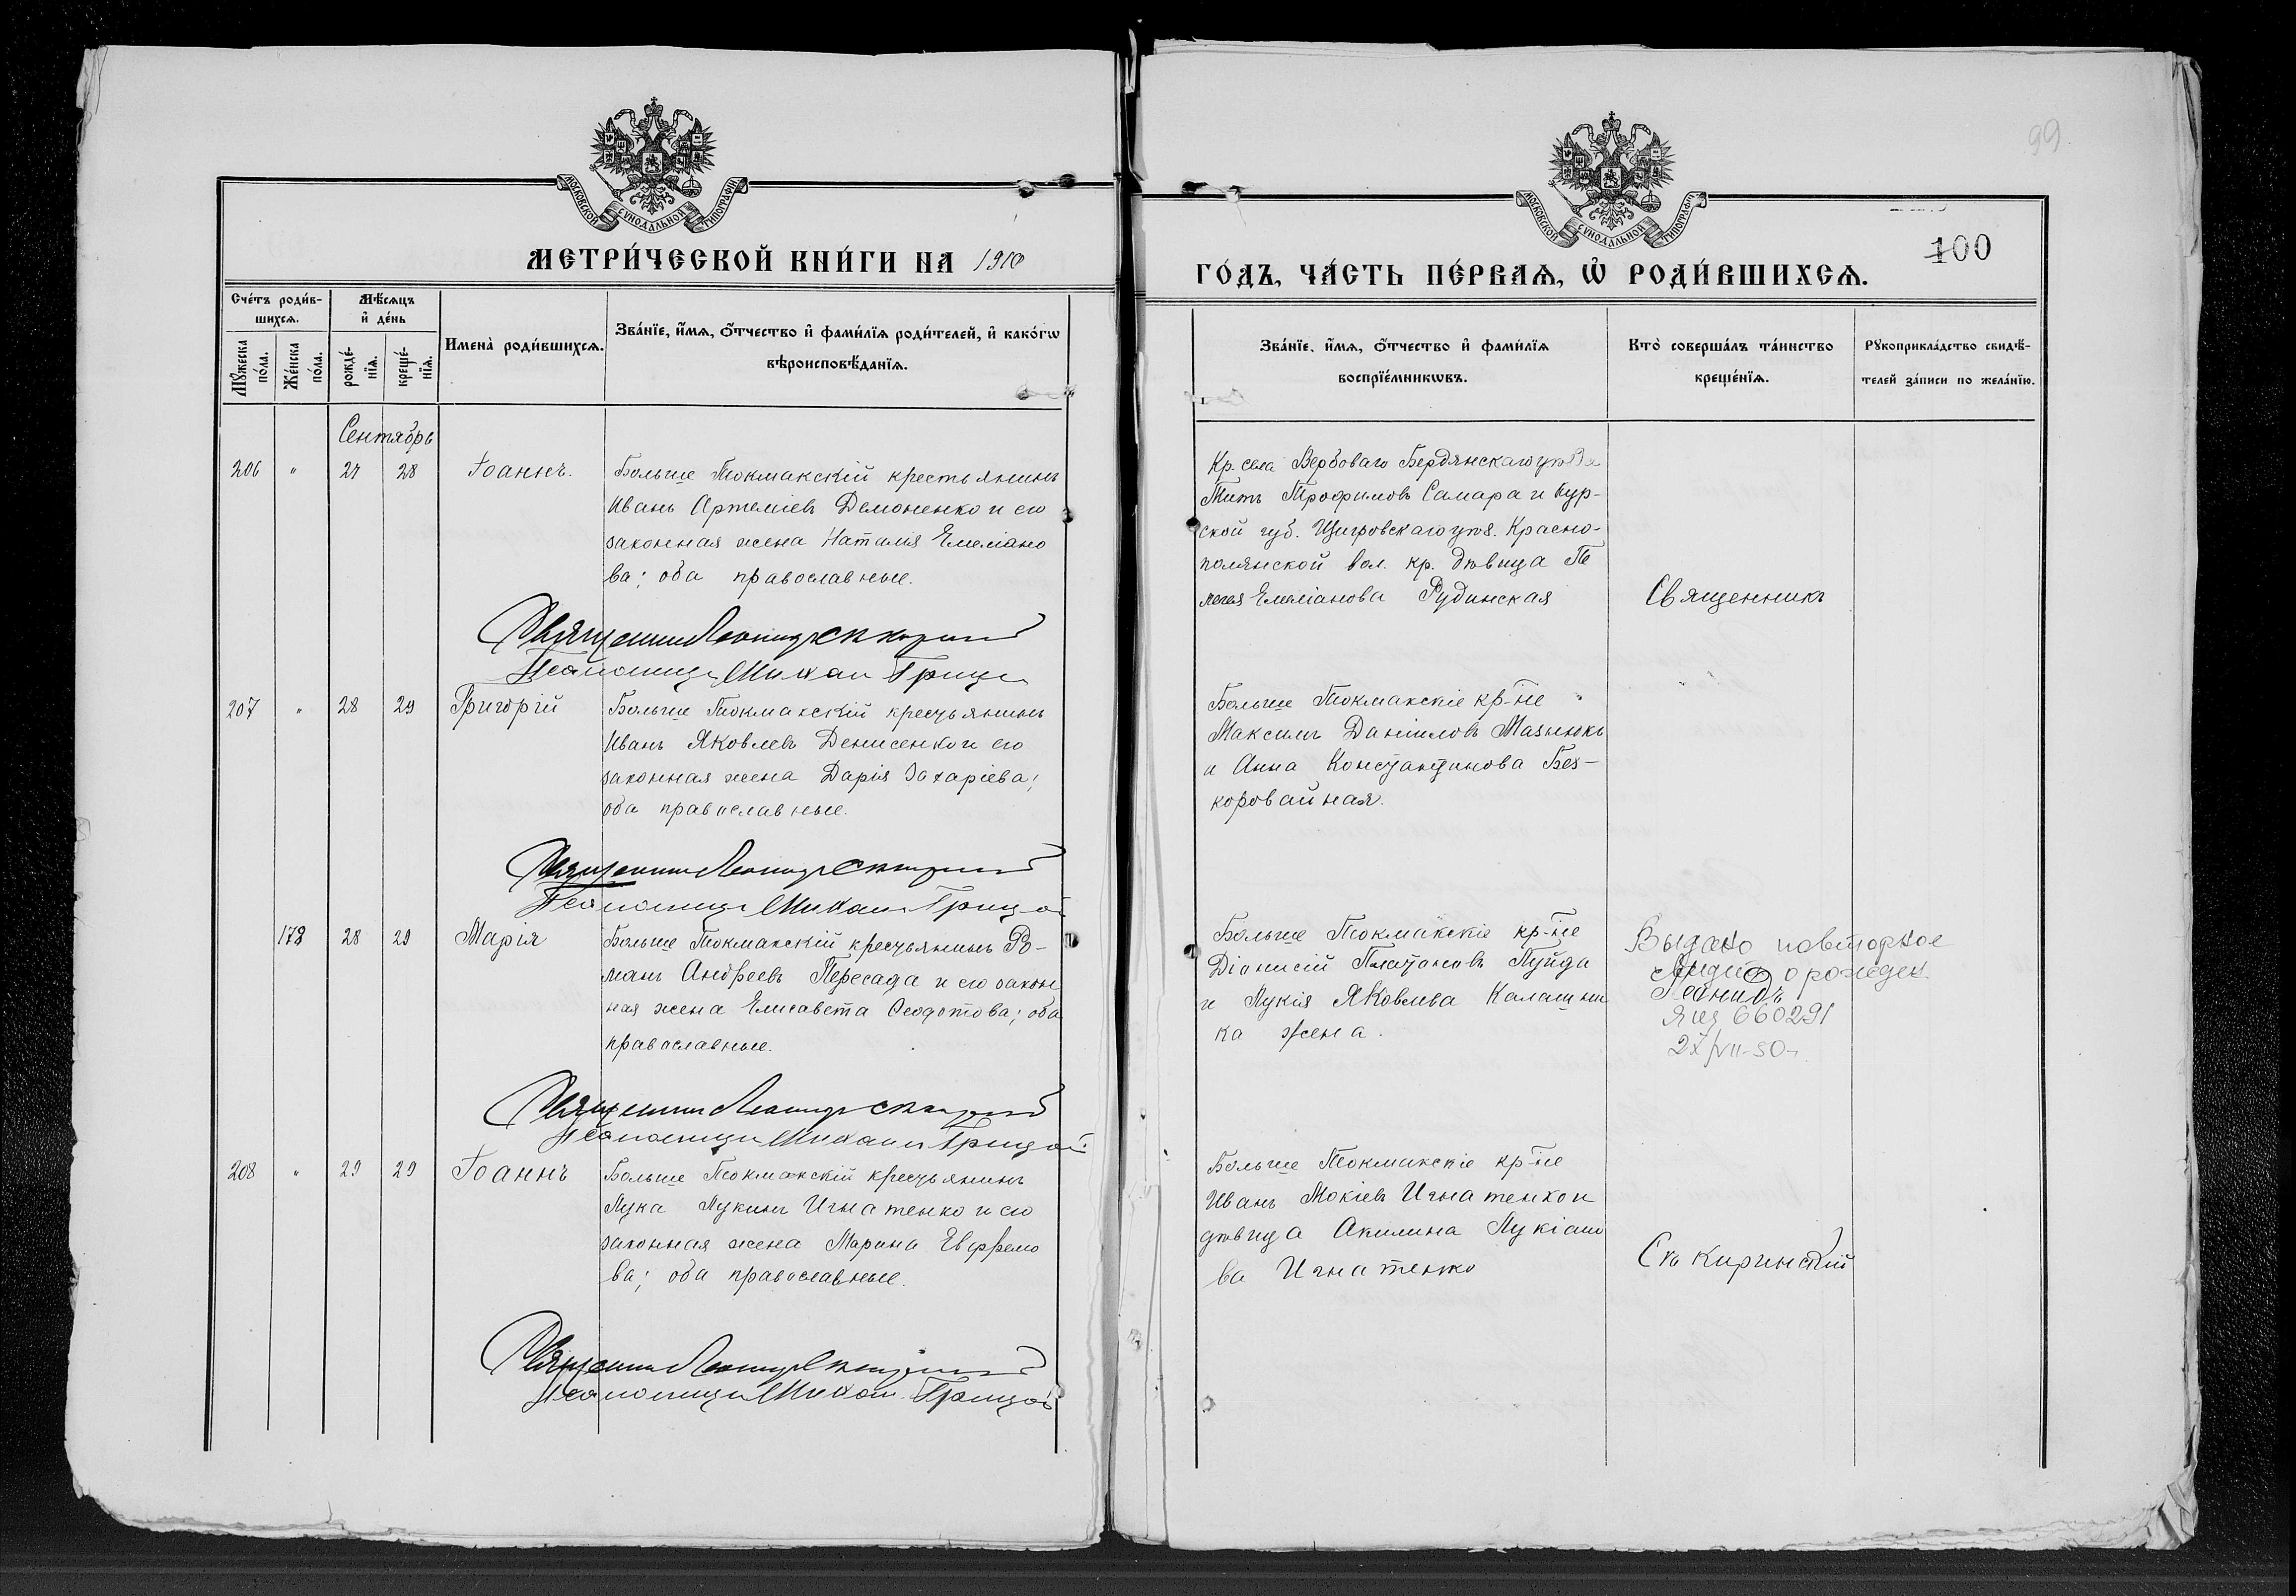 99
МОСКОВСКОЙ СѴНОДАЛЬНОЙ ТИПОГРАФІИ
МЕТРИ́ЧЕСКОЙ КНИ́ГИ НА 1910
Сче́тъ роди́в-
шихсѧ.
Мѣ́сѧцъ
и҆ де́нь
Мꙋ́жеска
по́ла.
Же́нска
по́ла.
рожде́-
нїѧ.
креще́-
нїѧ.
Имена̀ роди́вшихсѧ.
Зва́нїе, и҆́мѧ, ѻ҆́тчество и҆ фами́лїѧ роди́телей, и҆ како́гѡ
вѣроисповѣ́данїѧ.
Сентябрь
206 " 27 28 Іоаннъ.
Больше Токмакскій крестьянинъ
Иванъ Артеміевъ Демоненко и его
законная жена Наталія Емеліано
ва; оба православные.
Священникъ Леонидъ Сккиринскій
Псаломщикъ Михаилъ Грицай
207 " 28 29 Григорій
Больше Токмакскій крестьянинъ
Иванъ Яковлевъ Денисенко и его
законная жена Дарія Захаріева;
оба православные.
Священникъ Леонидъ Сккиринскій
Псаломщикъ Михаилъ Грицай
178 28 29 Марія
Больше Токмакскій крестьянинъ Ро-
манъ Андреевъ Пересада и его закон
ная жена Елисавета Ѳеодотова; оба
православные.
Священникъ Леонидъ Сккиринскій
Псаломщикъ Михаилъ Грицай
208 " 29 29 Іоаннъ
Больше Токмакскій крестьянинъ
Лука Лукинъ Игнатенко и его
законная жена Марина Евфремо
ва; оба православные.
Священникъ Леонидъ Сккиринскій
Псаломщикъ Михаилъ Грицай
МОСКОВСКОЙ СѴНОДАЛЬНОЙ ТИПОГРАФІИ
100
ГО́ДЪ, ЧА́СТЬ ПЕ́РВАѦ, Ѡ҆ РОДИ́ВШИХСѦ.
Зва́нїе, и҆́мѧ, ѻ҆́тчество и҆ фами́лїѧ
воспрїе́мникѡвъ.
Кто̀ соверша́лъ та́инство
креще́нїѧ.
Рꙋкоприкла́дство свидѣ́-
телей за́писи по жела́нїю.
Кр. села Вербоваго Бердянскаго уѣзда
Титъ Трофимовъ Самара и Кур-
ской губ. Щигровскаго уѣз. Красно-
полянской вол. кр. дѣвица Пе
лагея Емеліанова Рудинская
Священникъ
Больше Токмакскіе кр-не
Максимъ Даніиловъ Мазнюкъ
и Анна Константинова Без-
коровайная.
Больше Токмакскіе кр-не
Діонисій Платоновъ Луйда
и Лукія Яковлева Калашни
ка жена.
Выдано повторное
свид. о рожден
Леонидъ
Яця 660291
27/VII-50 г.
Больше Токмакскіе кр-не
Иванъ Мокіевъ Игнатенко и
дѣвица Акилина Лукіано
ва Игнатенко
Скккиринскій